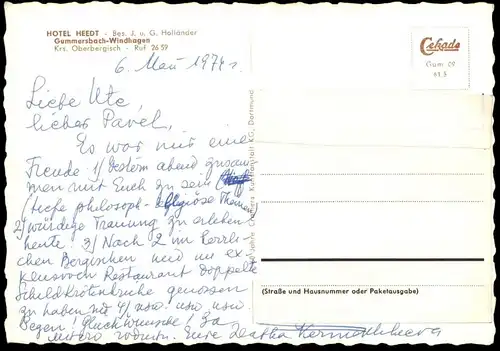 HOTEL HEEDT - Bes. J. u. G. Holländer
Gummersbach-Windhagen
Krs. Oberbergisch - Ruf 26 59
Cekade
Gum 29
61.5
6. Mai 1974
Liebe Ute,
lieber Pavel,
Es war mir eine
Freude 1/ Gestern abend zusam
men mit Euch zu sein
(tiefe philosoph-religiöse Themen
2/ würdige Trauung zu erleben
heute. 3/ Nach 2 im herrli-
chen Bergischen und im ex-
klusiven Restaurant doppelte
Schildkrötenbrühe genossen
zu haben 4/ usw. usw usw
Segen, Glückwünsche,
Eure
KG, Dortmund
(Straße und Hausnummer oder Paketausgabe)